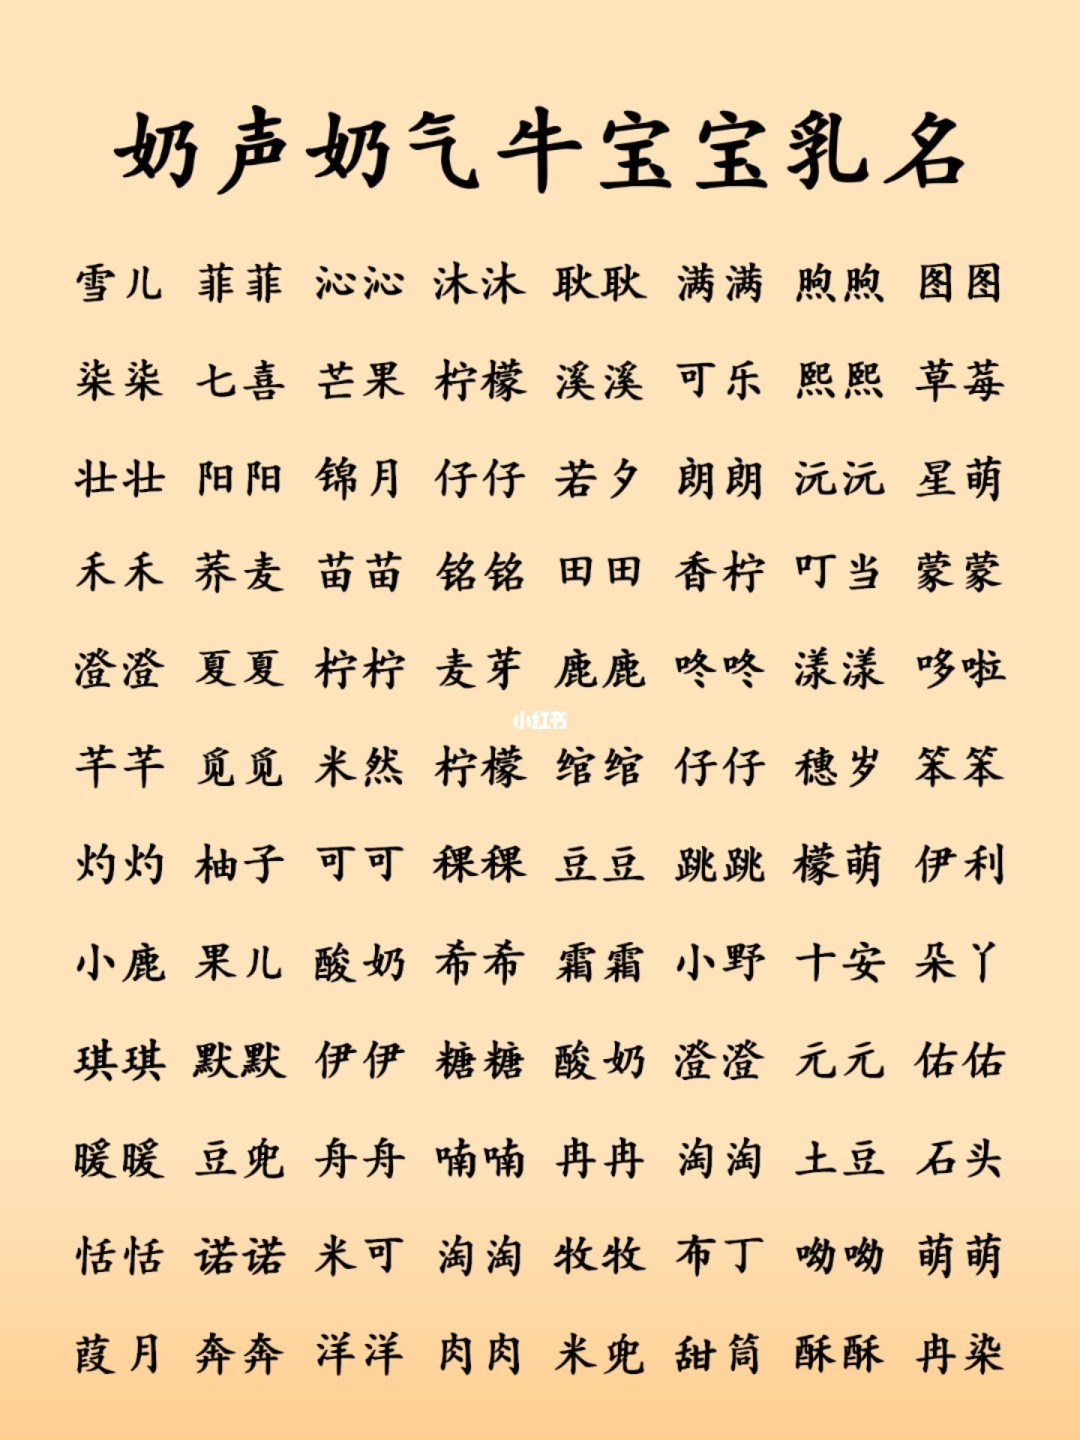 奶声奶气牛宝宝乳名
雪儿 菲菲 沁沁 沐沐 耿耿 满满 煦煦 图图
柒柒 七喜 芒果 柠檬 溪溪 可乐 熙熙 草莓
壮壮 阳阳 锦月 仔仔 若夕 朗朗 沅沅 星萌
禾禾 荞麦 苗苗 铭铭 田田 香柠 叮当 蒙蒙
澄澄 夏夏 柠柠 麦芽 鹿鹿 咚咚 漾漾 哆啦
小红书
芊芊 觅觅 米然 柠檬 绾绾 仔仔 穗岁 笨笨
灼灼 柚子 可可 稞稞 豆豆 跳跳 檬萌 伊利
小鹿 果儿 酸奶 希希 霜霜 小野 十安 朵丫
琪琪 默默 伊伊 糖糖 酸奶 澄澄 元元 佑佑
暖暖 豆兜 舟舟 喃喃 冉冉 淘淘 土豆 石头
恬恬 诺诺 米可 淘淘 牧牧 布丁 呦呦 萌萌
葭月 奔奔 洋洋 肉肉 米兜 甜筒 酥酥 冉染